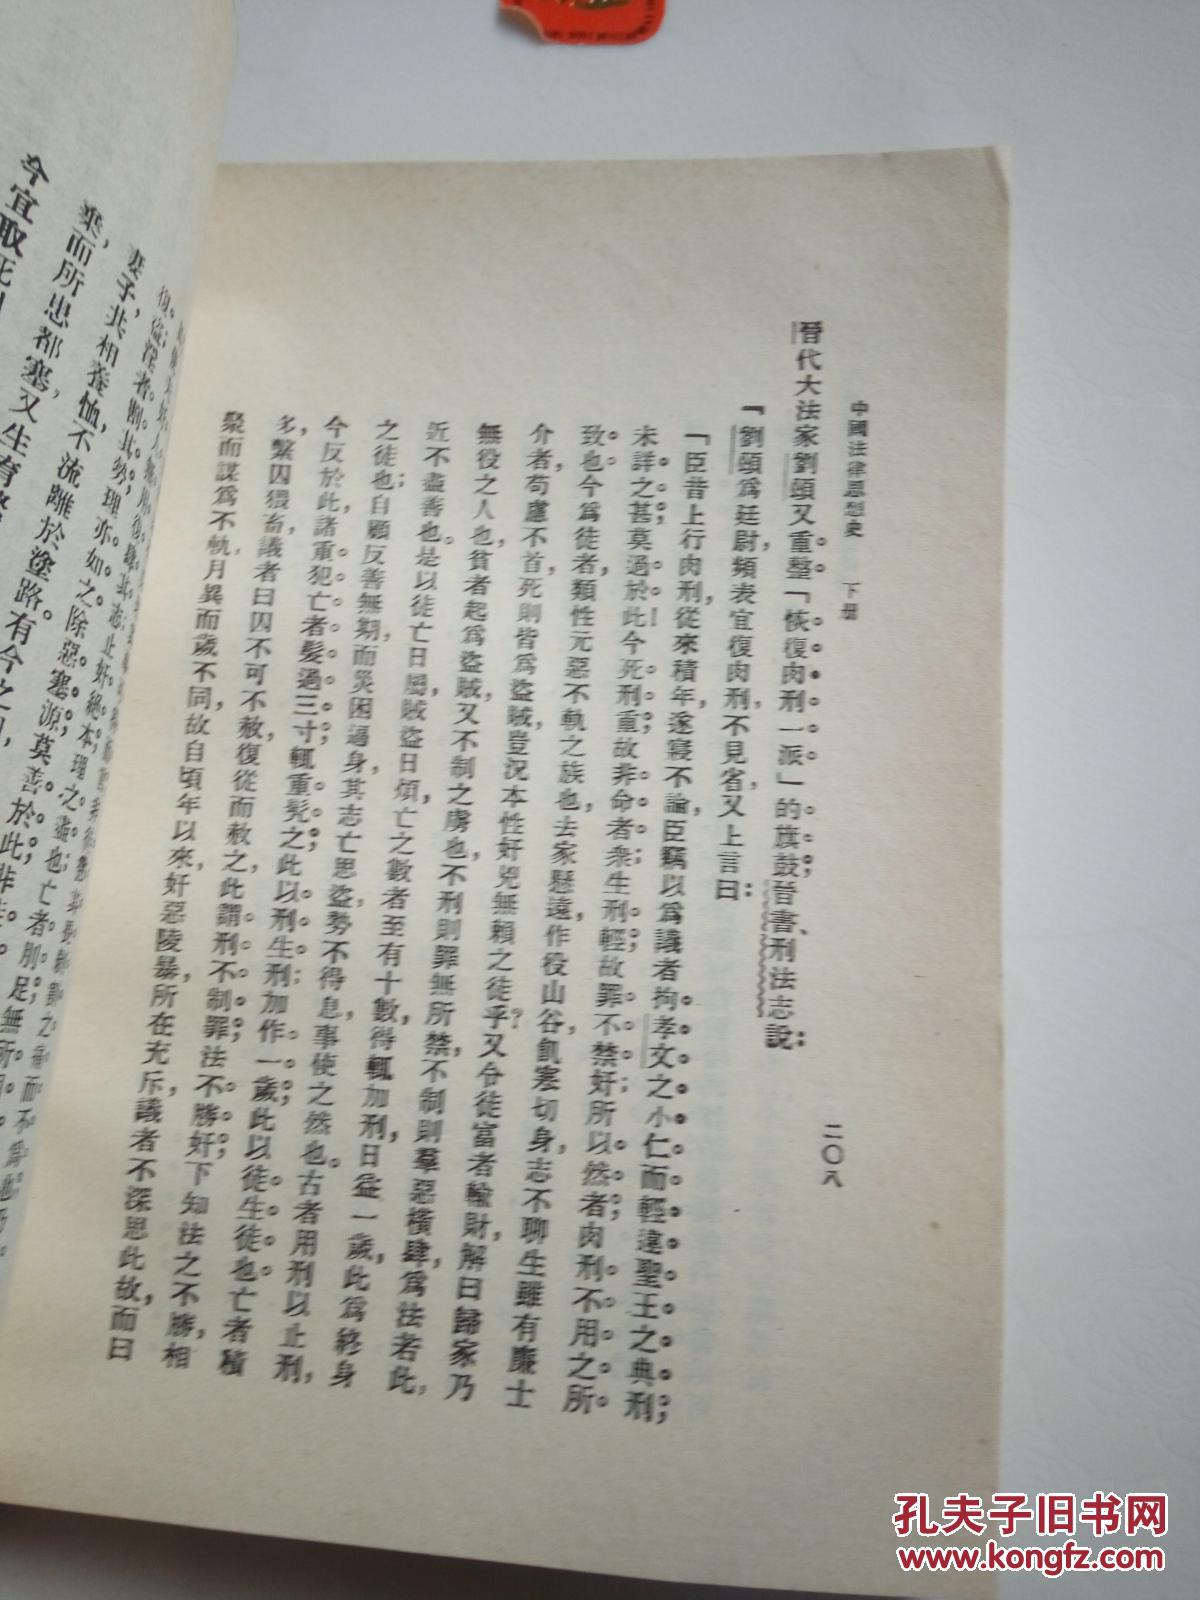 中國法律思想史　下册
二〇八
晉代大法家劉頌又重整「恢復肉刑一派」的旗鼓；晉書、刑法志說：
「劉頌爲廷尉，頻表宜復肉刑，不見省，又上言曰：
「臣昔上行肉刑，從來積年，遂寢不論，臣竊以爲議者拘孝文之小仁，而輕違聖王之典刑；
未詳之甚，莫過於此！今死刑重，故非命者衆；生刑輕，故罪不禁奸；所以然者，肉刑不用之所
致也。今爲徒者，類性元惡不軌之族也，去家懸遠，作役山谷，飢寒切身，志不聊生，雖有廉士
介者，苟慮不首死，則皆爲盜賊，豈況本性奸兇無賴之徒乎？又令徒富者輸財，解日歸家，乃
無役之人也，貧者起爲盜賊，又不制之虜也，不刑則罪無所禁，不制則羣惡橫肆，爲法若此，
近不盡善也。是以徒亡日屬，賊盜日煩，亡之數者至有十數，得輒加刑，日益一歲，此爲終身
之徒也；自顧反善無期，而災困逼身，其志亡思盜，勢不得息，事使之然也。古者用刑以止刑，
今反於此，諸重犯亡者，髮過三寸，輒重髡之，此以刑生刑；加作一歲，此以徒生徒也。亡者積
多，繫囚猥畜，議者曰囚不可不赦，復從而赦之，此謂刑不制罪，法不勝奸；下知法之不勝，相
聚而謀爲不軌，月異而歲不同，故自頃年以來，奸惡陵暴，所在充斥，議者不深思此故，而曰
妻子共相養恤，不流離於塗路。有今之
棄，而所患都塞，又生育
今宜取死
孔夫子旧书网
www.kongfz.com